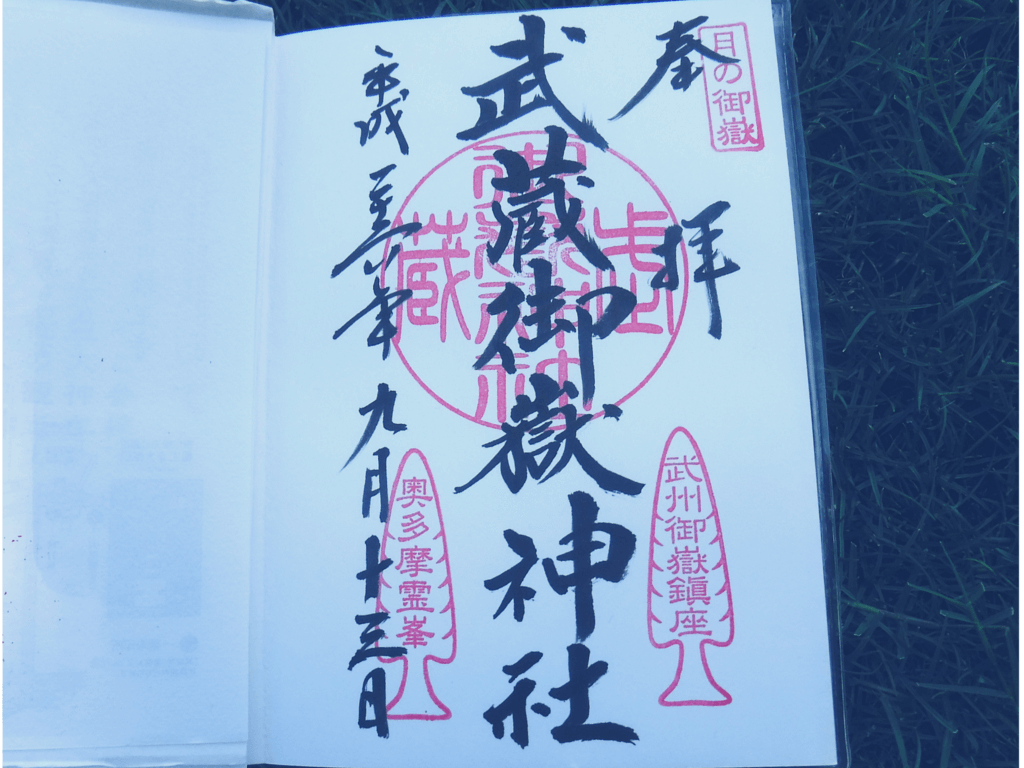 月の御嶽
奉拝
武州御嶽鎮座
武蔵御嶽神社
武
蔵
平成二十六年九月十三日
奥多摩霊峯